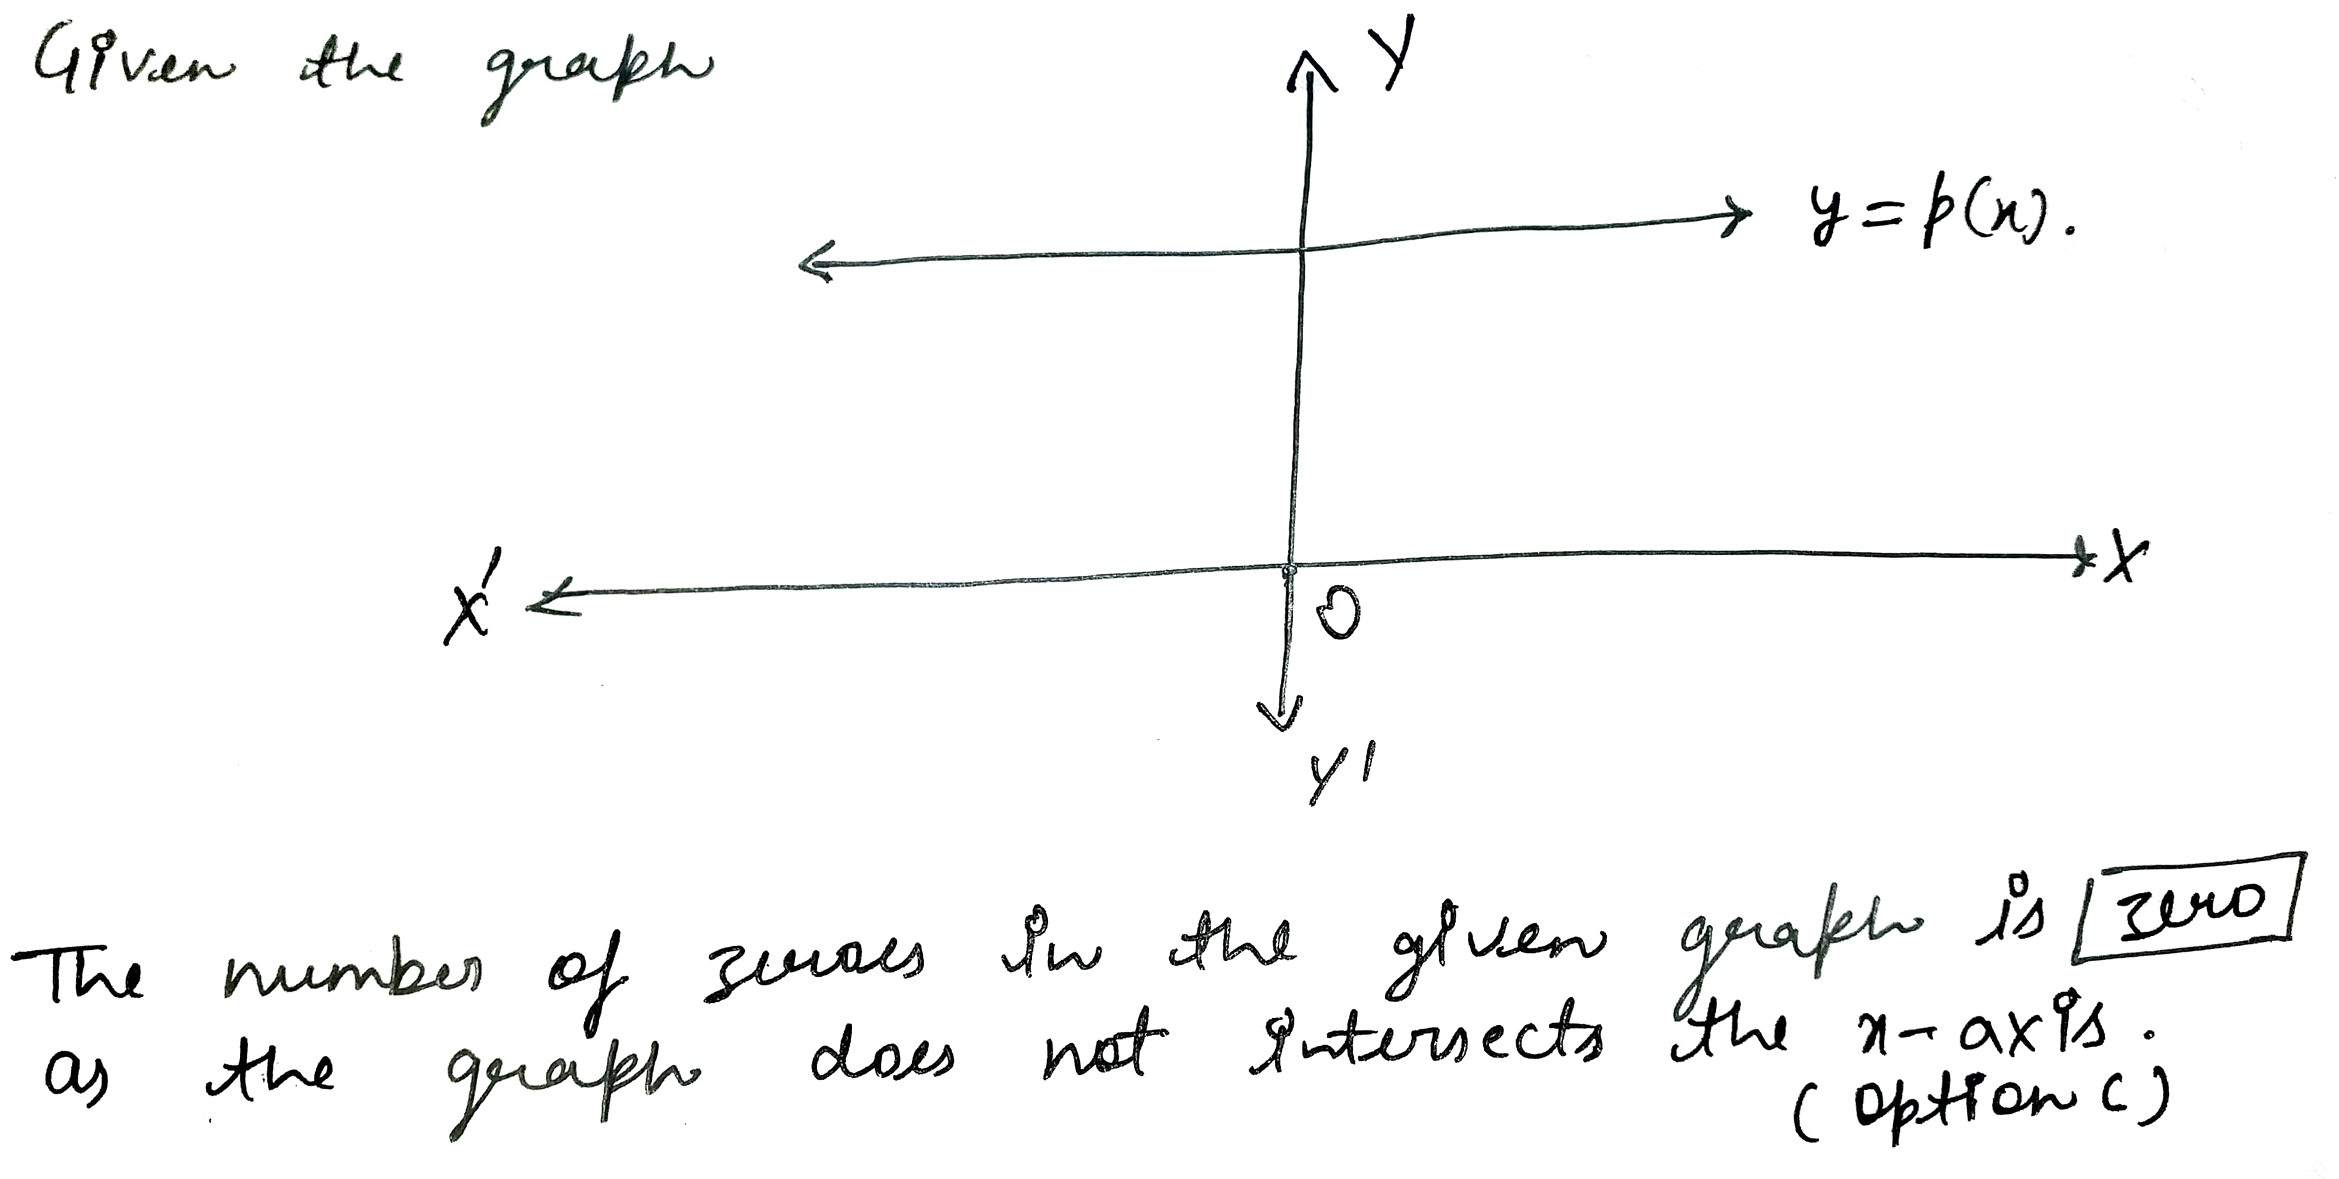 Given the graph
Y
y = p(x).
X'
X
O
Y'
The number of zeroes in the given graph is zero
as the graph does not intersects the x-axis.
(option C)